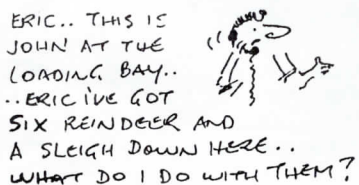 ERIC.. THIS IS
JOHN AT THE
LOADING BAY..
..ERIC I'VE GOT
SIX REINDEER AND
A SLEIGH DOWN HERE..
WHAT DO I DO WITH THEM?